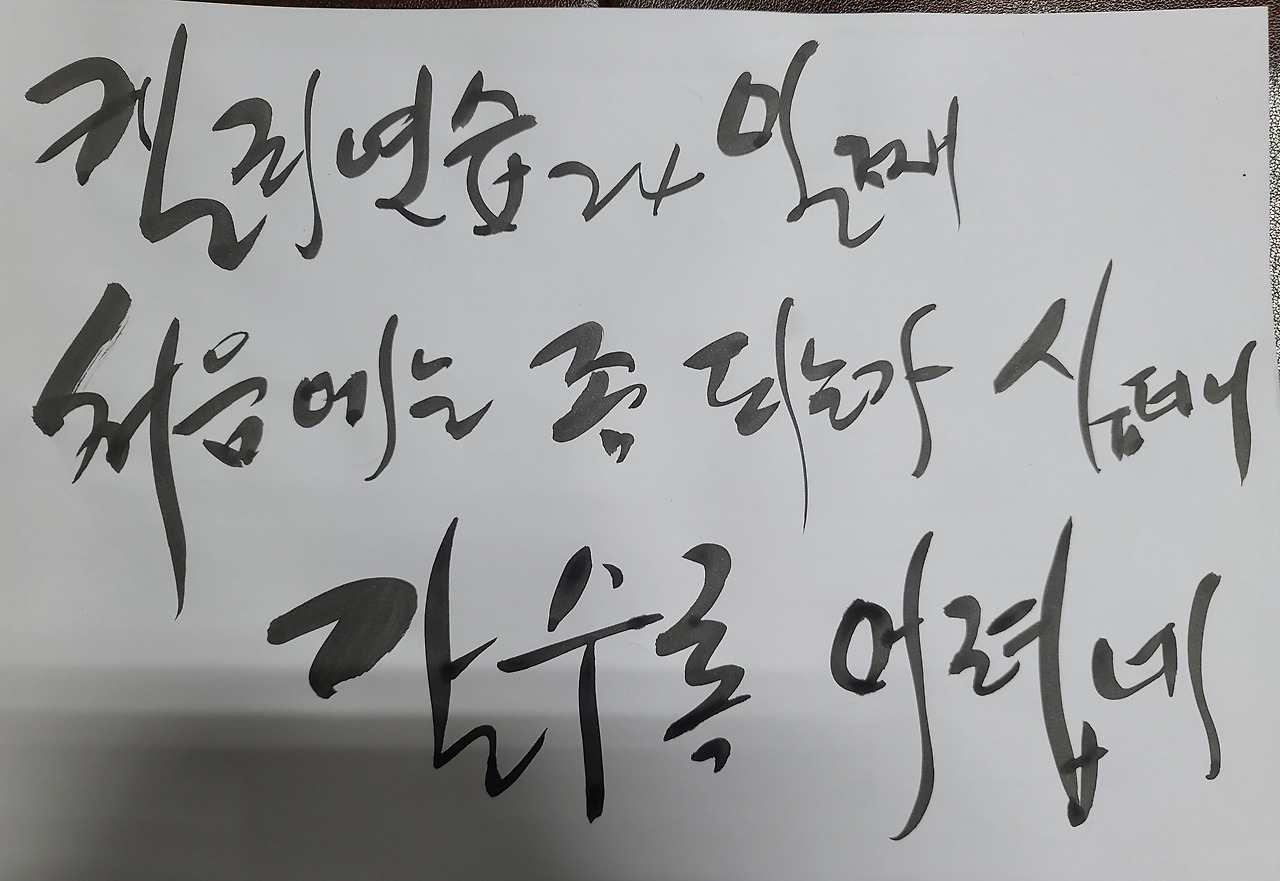 캘리연습 24일째
처음에는 좀 되는가 싶더니
갈수록 어렵네